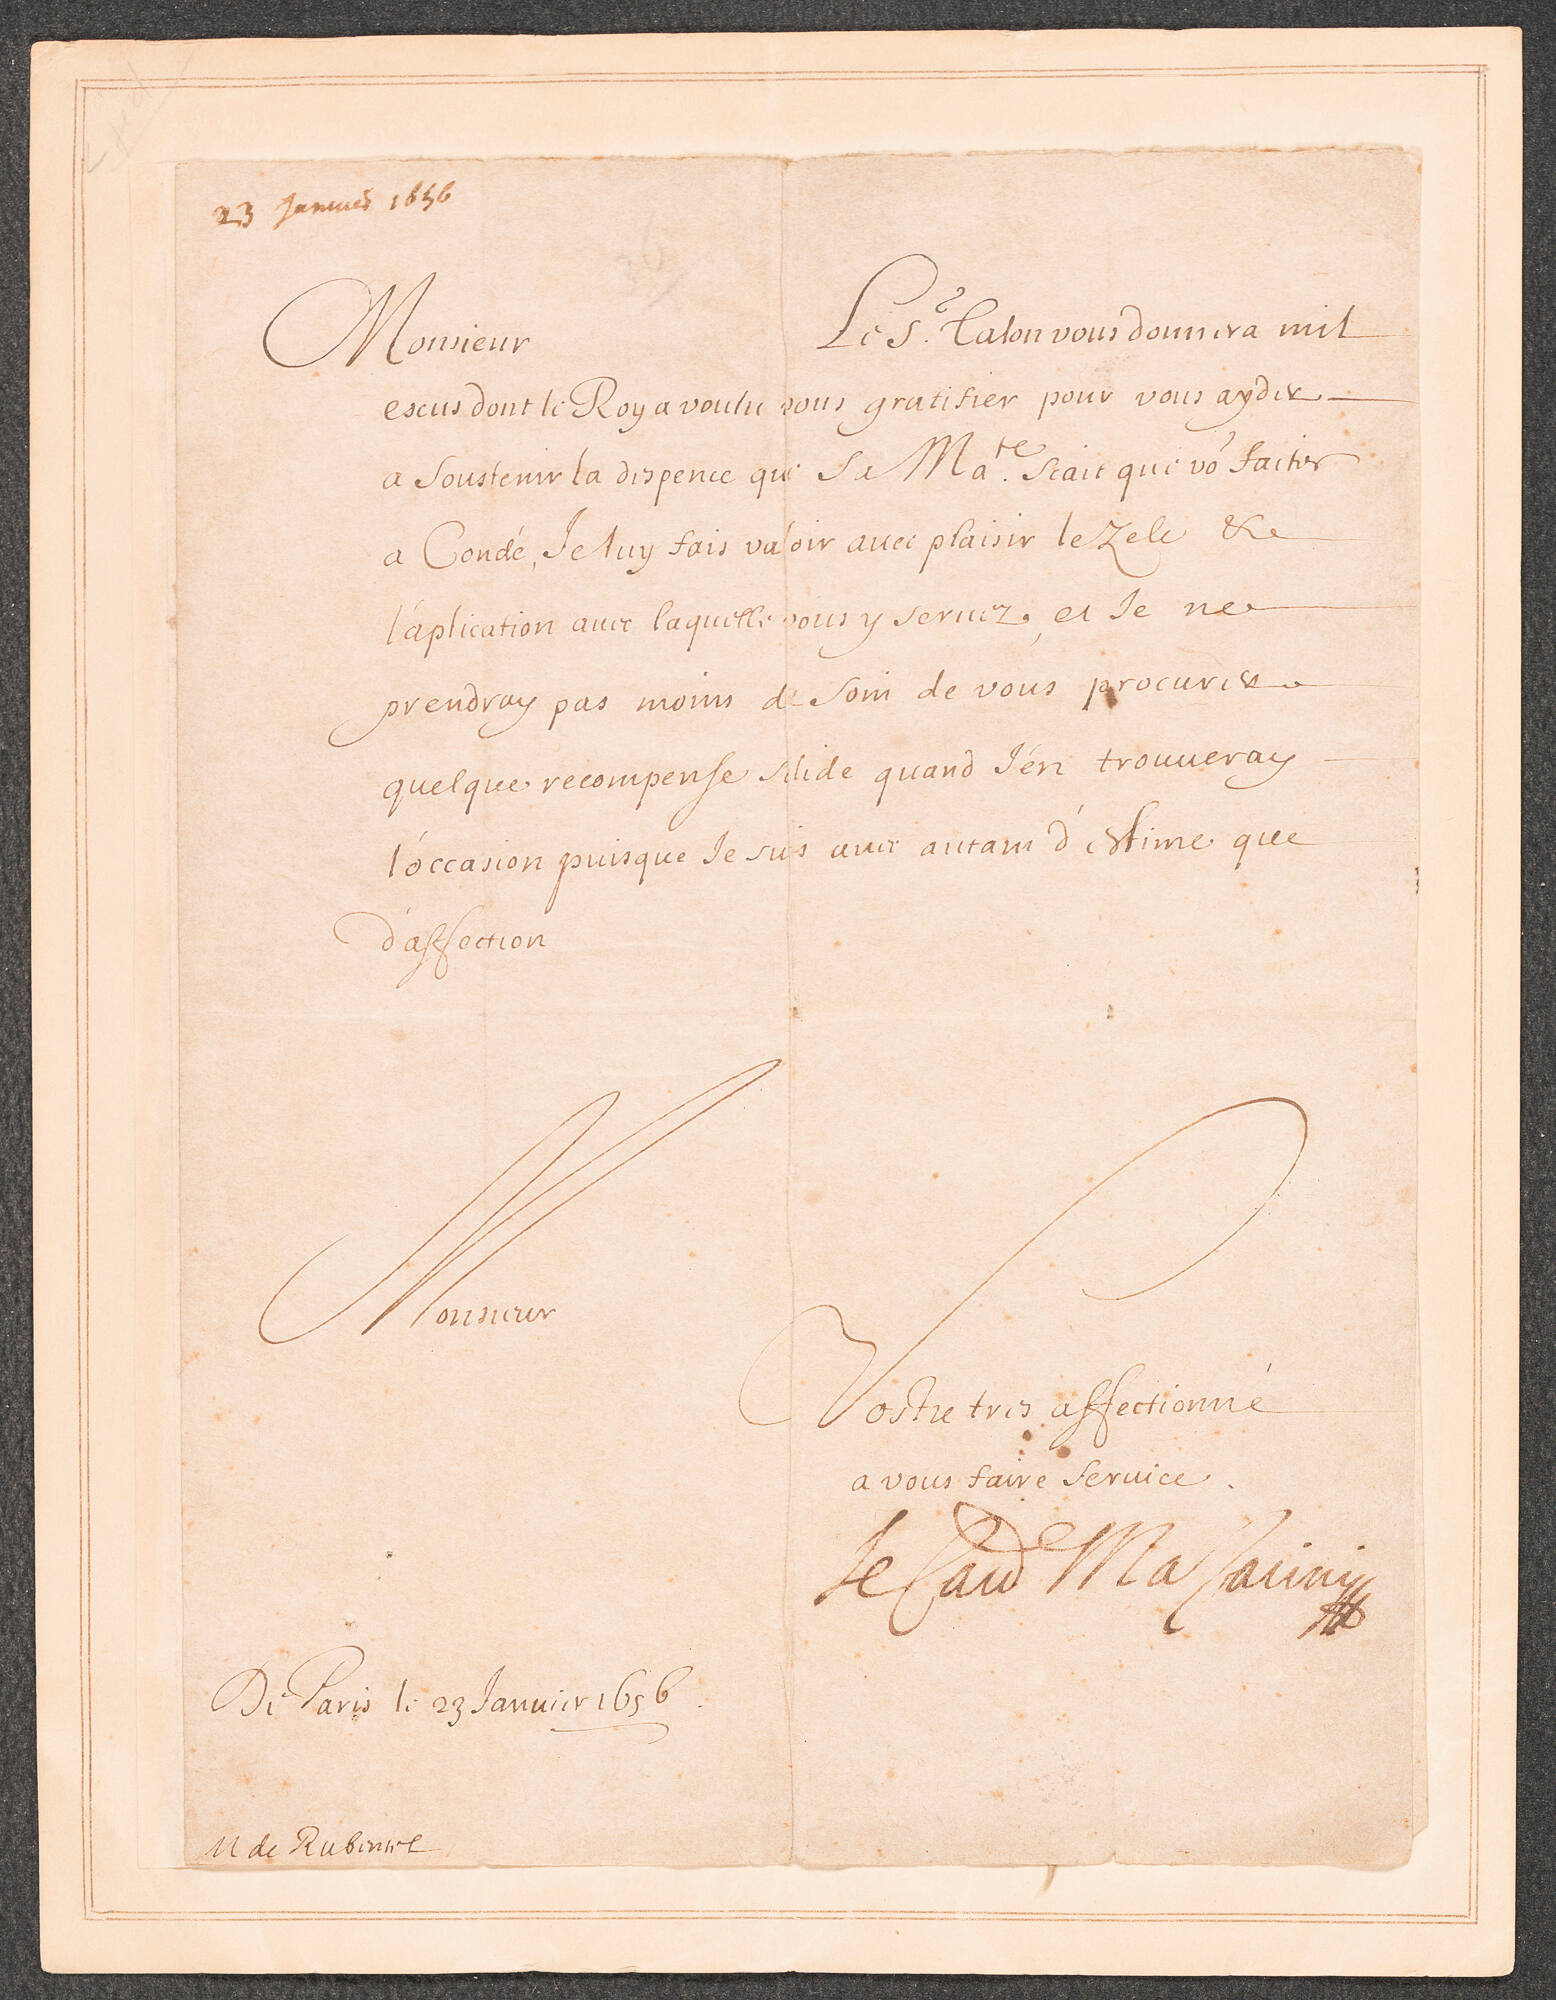 23 Januier 1656
Monsieur Le Sr. Talon vous donnera mil
escus dont le Roy a voulu vous gratifier pour vous ayder
a soustenir la dispence que Sa Mate. scait que vo' faites
a Condé, Je luy fais valoir avec plaisir le Zele &
l'aplication avec laquelle vous y seruez, et Je ne
prendray pas moins de soin de vous procurer
quelque recompense solide quand J'en trouueray
l'occasion puisque Je suis avec autant d'estime que
d'affection
Monsieur
Vostre tres affectionné
a vous faire seruice.
le Card Mazarini
De Paris le 23 Januier 1656.
M de